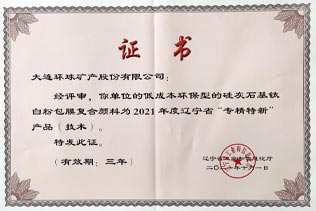 证书
大连环球矿产股份有限公司：
经评审，你单位的低成本环保型的硅灰石基钛
白粉包膜复合颜料为2021年度辽宁省“专精特新”
产品（技术）。
特发此证。
（有效期：三年）
辽宁省工业和信息化厅
二〇二一年十月一日